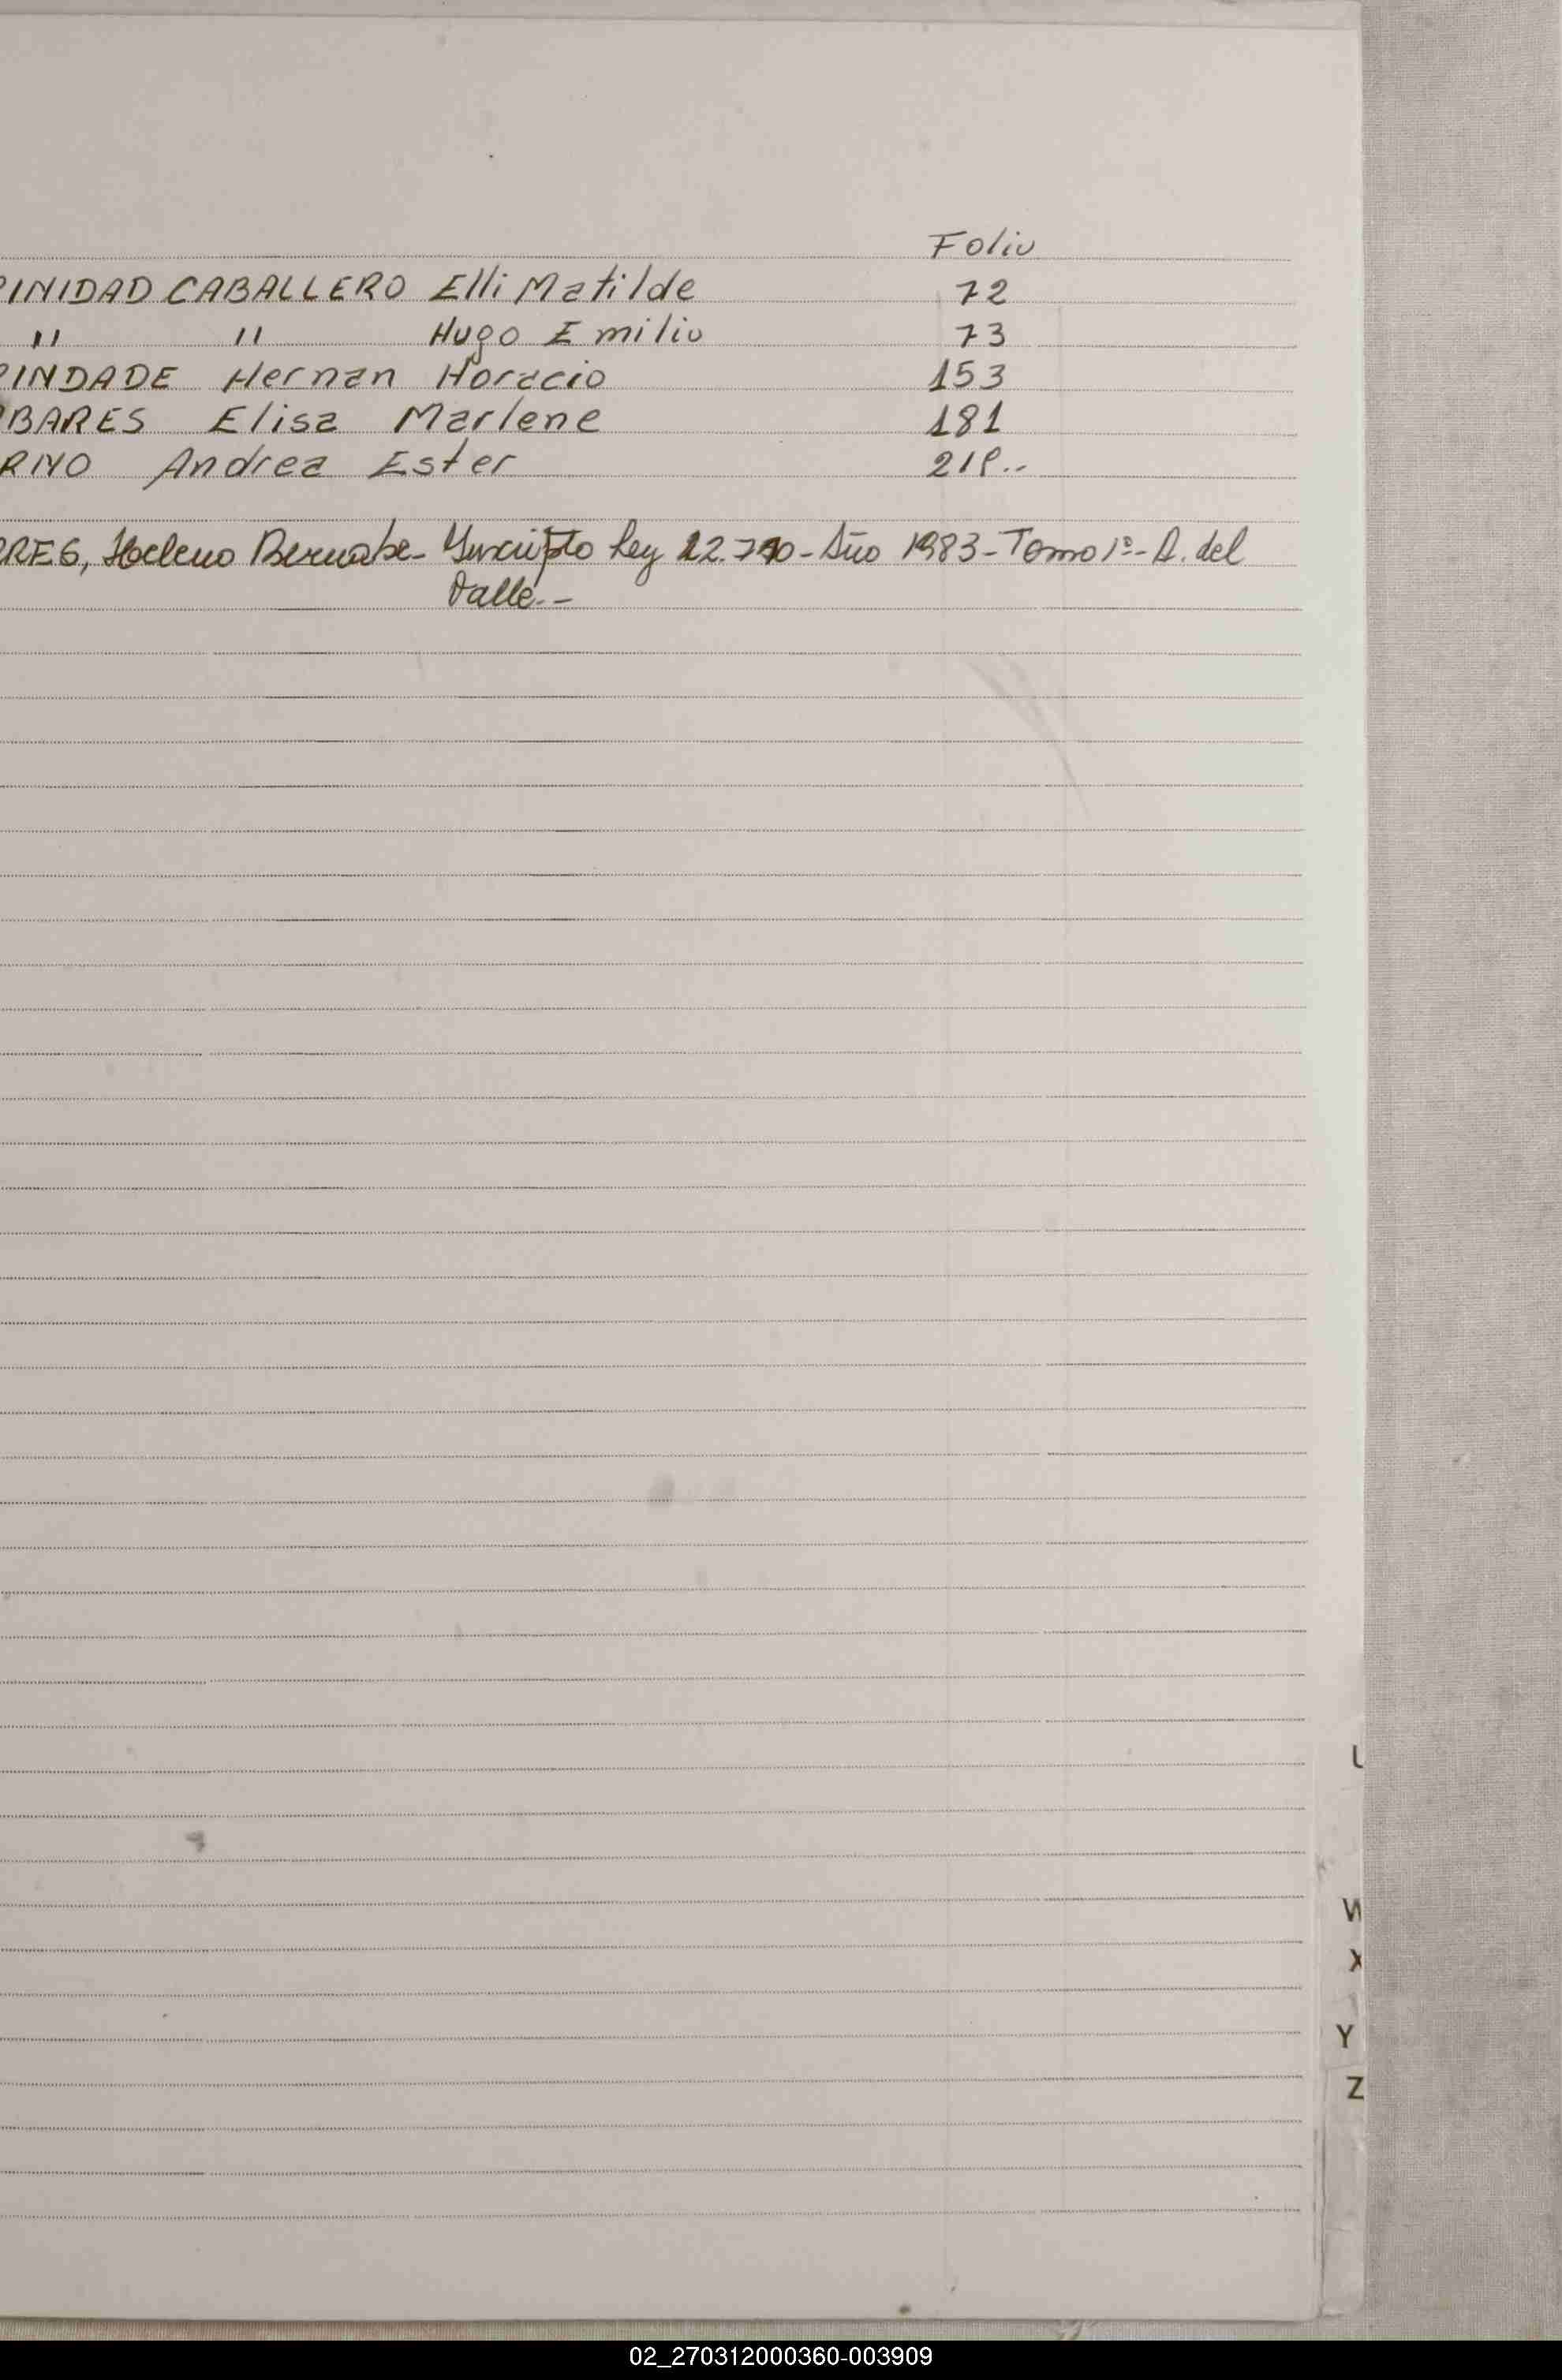 Folio
RINIDAD CABALLERO Elli Matilde 72
" " Hugo Emilio 73
RINDADE Hernan Horacio 153
BARES Elisa Marlene 181
RNO Andrea Ester
RRES, Bernabe - Inscripto Ley 22.7 - Año 1983 - Tomo 1º - A. del
Valle. -
U
W
X
Y
Z
02_270312000360-003909